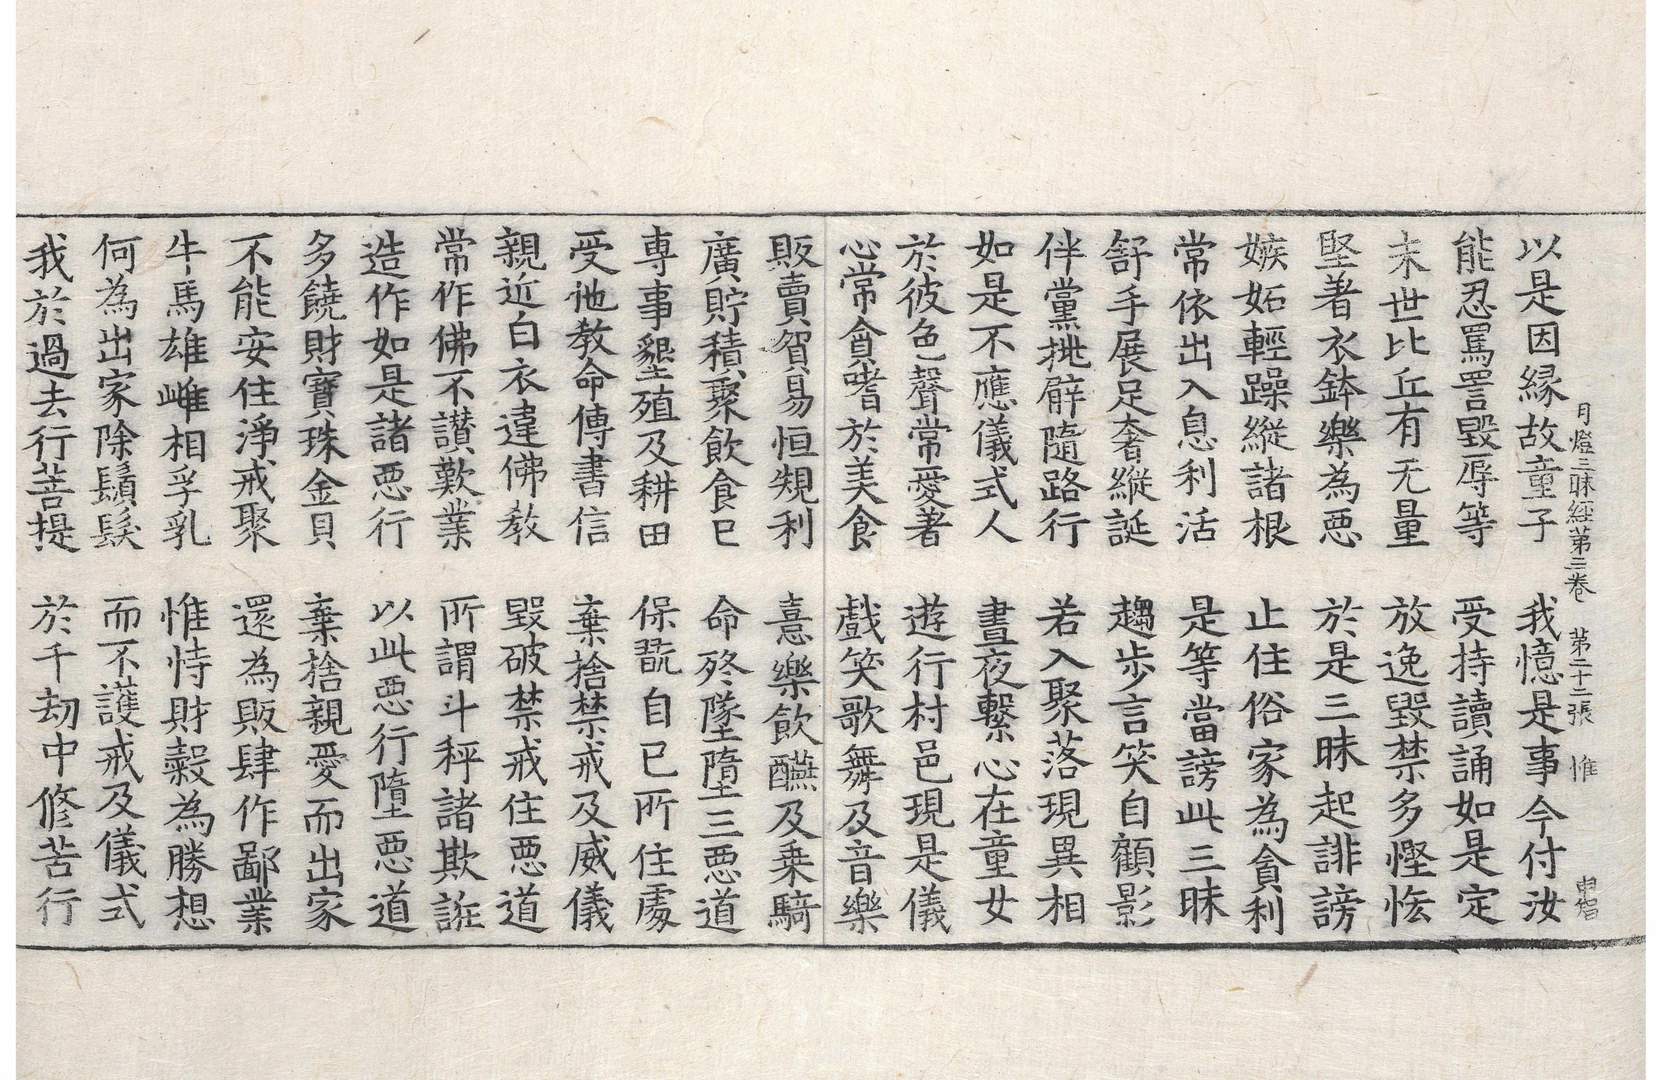 月燈三昧經第三卷 第二十二張 惟
以是因縁故童子 我憶是事今付汝
能忍罵詈毀辱等 受持讀誦如是定
末世比丘有无量 放逸毀禁多慳悋
堅著衣鉢樂為惡 於是三昧起誹謗
嫉妬輕躁縱諸根 止住俗家為貪利
常依出入息利活 是等當謗此三昧
舒手展足奢縱誕 趨步言笑自顧影
伴黨挑臂隨路行 若入聚落現異相
如是不應儀式人 晝夜繫心在童女
於彼色聲常愛著 遊行村邑現是儀
心常貪嗜於美食 戲笑歌舞及音樂
販賣貿易恒規利 憙樂飲醼及乗騎
廣貯積聚飲食已 命終墜墮三惡道
専事墾殖及耕田 保翫自已所住處
受他教命傳書信 棄捨禁戒及威儀
親近白衣違佛教 毀破禁戒住惡道
常作佛不讃歎業 所謂斗秤諸欺誑
造作如是諸惡行 以此惡行墮惡道
多饒財寶珠金貝 棄捨親愛而出家
不能安住淨戒聚 還為販肆作鄙業
牛馬雄雌相孚乳 惟恃財糓為勝想
何為出家除鬚髮 而不護戒及儀式
我於過去行菩提 於千劫中修苦行